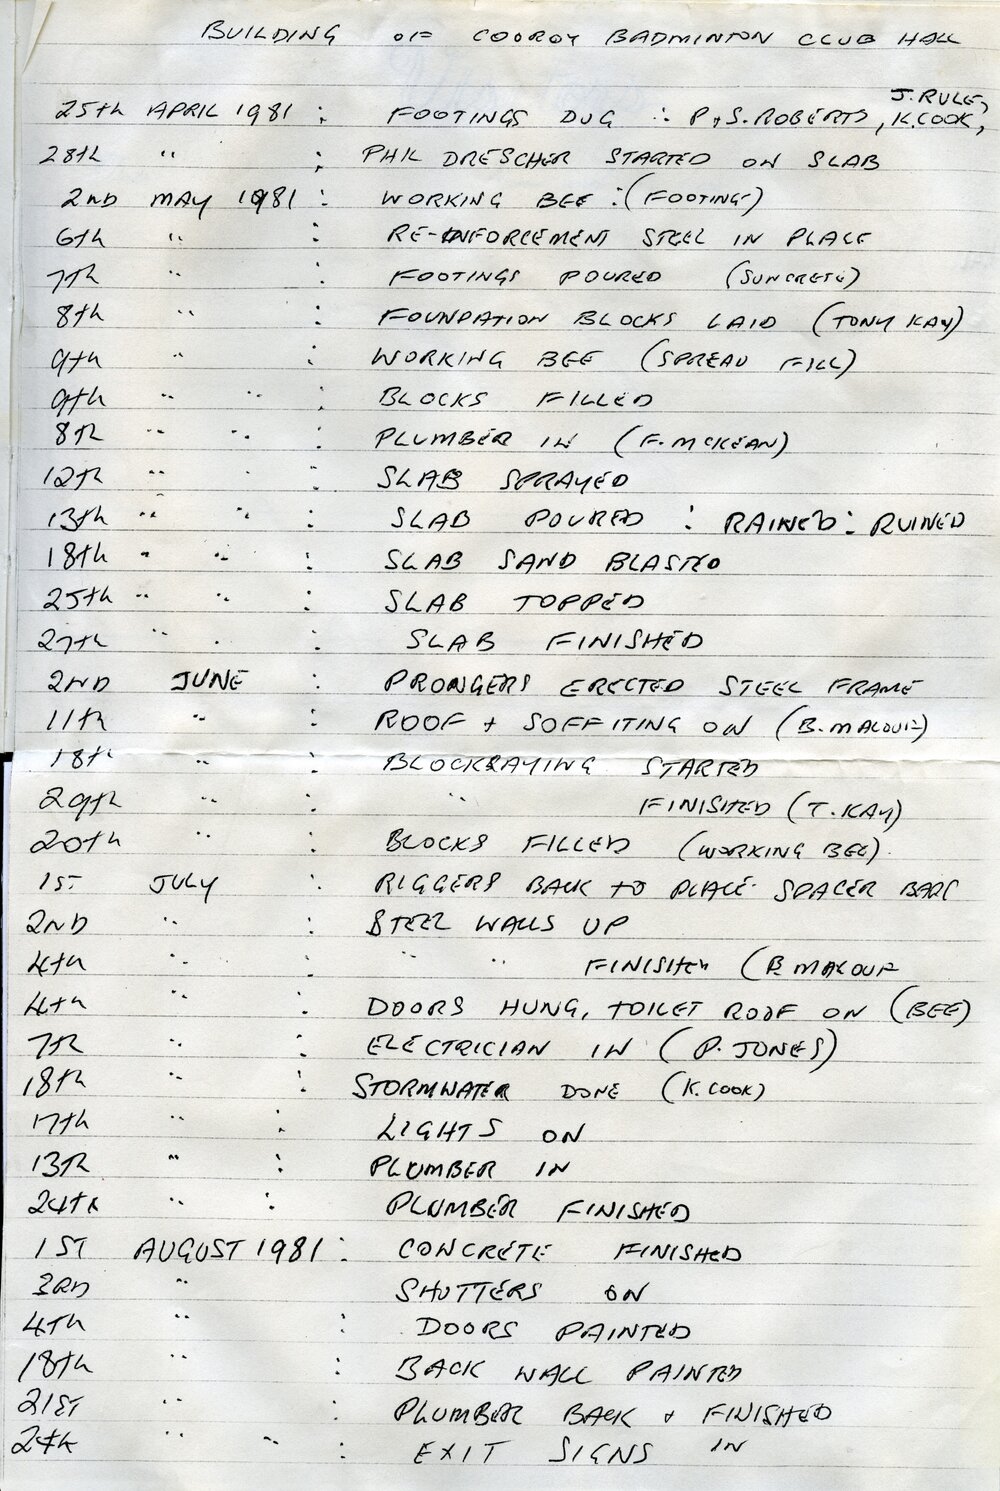 BUILDING OF COOROY BADMINTON CLUB HALL
25th APRIL 1981 : FOOTINGS DUG : P & S. ROBERTS, J. RULE, K. COOK,
28th " : PHIL DRESCHER STARTED ON SLAB
2ND MAY 1981 : WORKING BEE : (FOOTINGS)
6th " : RE-INFORCEMENT STEEL IN PLACE
7th " : FOOTINGS POURED (SUNCRETE)
8th " : FOUNDATION BLOCKS LAID (TONY KAY)
9th " : WORKING BEE (SPREAD FILL)
9th " " : BLOCKS FILLED
8th " " : PLUMBER IN (F. MCKEAN)
12th " " : SLAB SPRAYED
13th " " : SLAB POURED : RAINED : RUINED
18th " " : SLAB SAND BLASTED
25th " " : SLAB TOPPED
27th " " : SLAB FINISHED
2ND JUNE : PRONGERS ERECTED STEEL FRAME
11th " : ROOF + SOFFITING ON (B. MALOUF)
18th " : BLOCKLAYING STARTED
29th " : " FINISHED (T. KAY)
20th " : BLOCKS FILLED (WORKING BEE).
1ST JULY : RIGGERS BACK TO PLACE SPACER BARS
2ND " : STEEL WALLS UP
4th " : " " FINISHED (B. MALOUF
4th " : DOORS HUNG, TOILET ROOF ON (BEE)
7th " : ELECTRICIAN IN (P. JONES)
18th " : STORMWATER DONE (K. COOK)
17th " : LIGHTS ON
13th " : PLUMBER IN
24th " : PLUMBER FINISHED
1ST AUGUST 1981 : CONCRETE FINISHED
3RD " SHUTTERS ON
4TH " : DOORS PAINTED
18th " : BACK WALL PAINTED
21ST " : PLUMBER BACK & FINISHED
24th " " : EXIT SIGNS IN